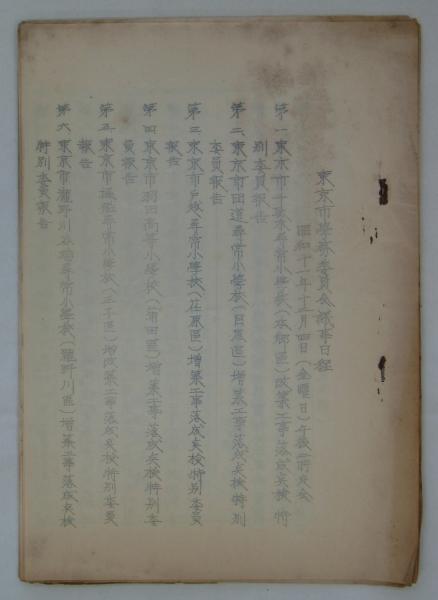 東京市學務委員会議事日程
昭和十一年十二月四日(金曜日)午後二時
第一、東京市千駄木尋常小學校(本郷區)改築工事落成点検特
別委員報告
第二、東京市田道尋常小學校(目黒區)増築工事落成点検特別
委員報告
第三、東京市戸越尋常小學校(荏原區)増築工事落成点検特別委員
報告
第四、東京市羽田高等小學校(蒲田區)増築工事落成点検特別委
員報告
第五、東京市尋常小學校(王子區)増改築工事落成点検特別委員
報告
第六、東京市瀧野川尋常小學校(瀧野川區)増築工事落成点検
特別委員報告